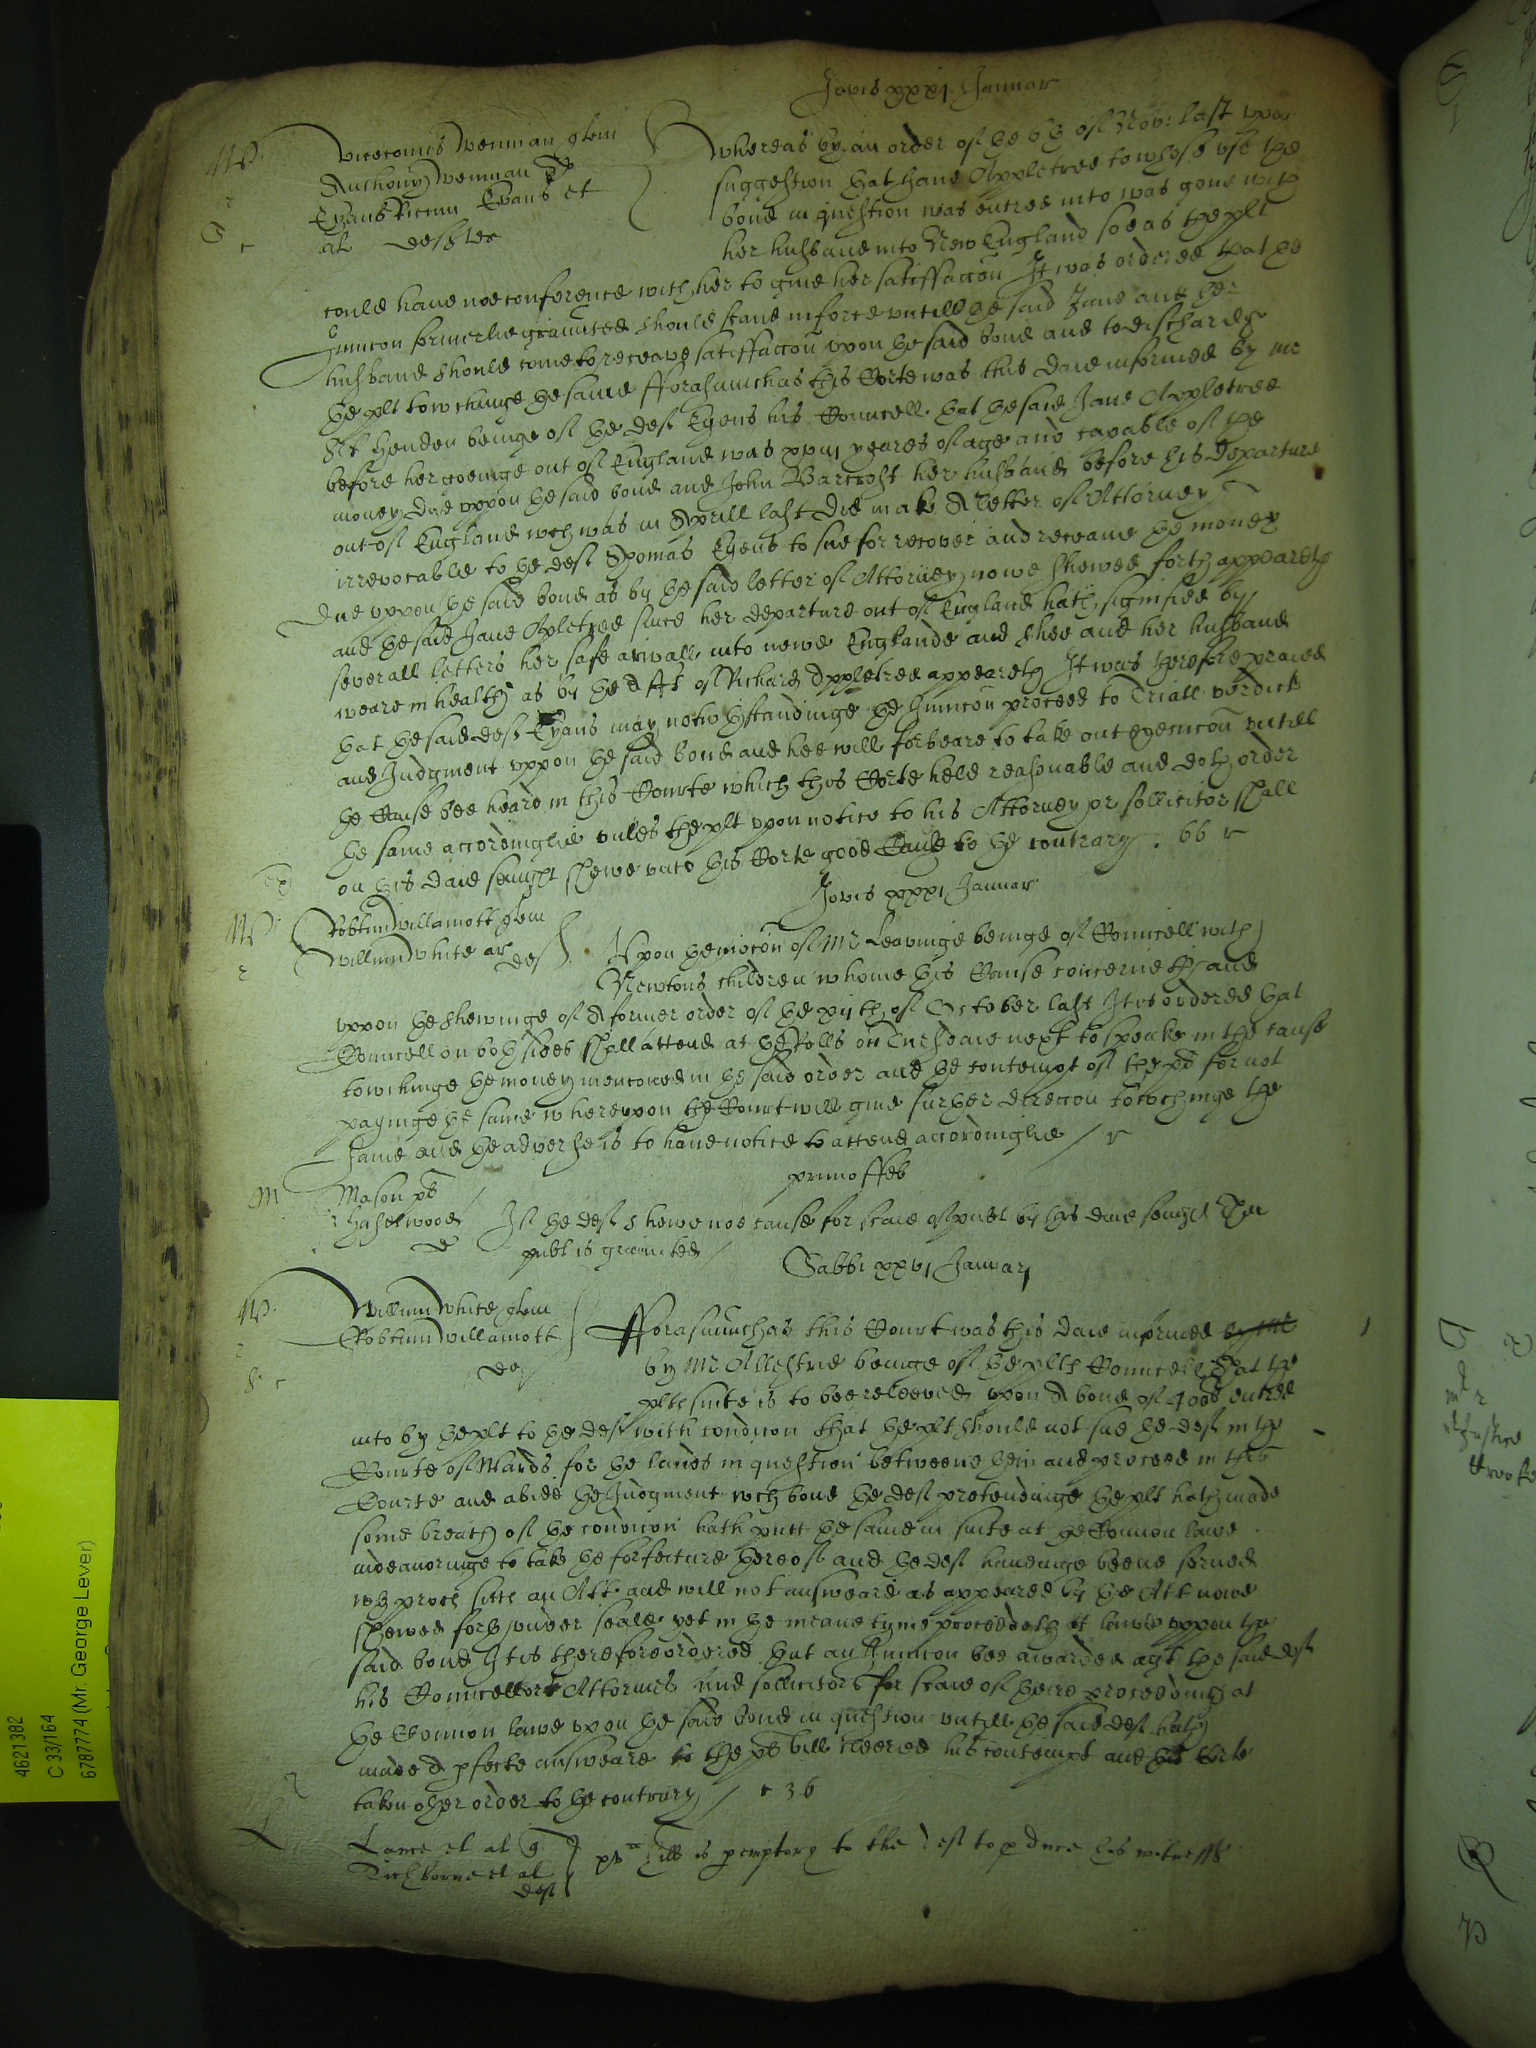 Jovis xxxi Januar
Vicecomes Wenman quer
Anthony Wenman
Evans et
al defts
whereas by an order of the of Nov: last upon
suggestion that Jane Appletree to whose use the
bond in question was entred into was gone with
her husband into New England soe as the plt
could have noe conference with her to give her satisfaccon It was ordered that the
Iniuncon formerlie graunted should stand in force untill the said Jane and her
husband should come to receave satisfaccon upon the said bond and to discharge
the plt towchinge the same fforasmuch as this Corte was this daie informed by mr
Sit Henden beinge of the def Evens his Councell that the said Jane Appletree
before her goeinge out of England was xxiii yeares of age and capable of the
money due uppon the said bond and John Barcroft her husband before his departure
out of England wch was in Aprill last did make A letter of Attorney
irrevocable to the def Thomas Evens to sue for recover and receave the money
due uppon the said bond as by the said letter of Attorney nowe shewed forth appeareth
and the said Jane Apletree since her departure out of England hath signified by
severall letters her safe arivall into newe Englande and shee and her husband
weare in health as by the Afft of Richard Appletree appeareth It was therefore praied
that the said def Evans may notwthstandinge the Iniuncon proceed to Triall verdict
and Judgment uppon the said bond and hee will forbeare to take out execucon untill
the Cause bee heard in this Courte which this Corte held reasonable and doth order
the same accordinglie unles the plt upon notice to his Attorney or sollicitor shall
on this daie sevnight shewe unto this Corte good Cause to the contrary . 66 r
Jovis xxxi Januar
Robtus Willamott quer
Willim White ar
def
Upon the mocon of Mr Leavinge beinge of Councell with
Newtons children whome this Cause concerneth and
uppon the shewinge of A former order of the xiith of October last It is ordered that
Councell on both sides shall attend at the Rolls on Tuesdaie next to speake in the cause
towchinge the money menconed in the said order and the contempt of the pl for not
payinge the same whereuppon the Court will give further direccon towchinge the
same and the adverse is to have notice to attend accordinglie / r
primo ffeb
Mason pl
Haselwood
d
If the def shewe noe cause for staie of publ by this daie sevnight then
publ is graunted /
Sabbi xxvi Januarij
Willim White quer
Robtum Willamott
def
Fforasmuch as this Court was this daie informed by mr
by Mr Allestrie beinge of the plts Councell that the
plts suite is to bee releeved upon A bond of 400l entred
into by the plt to the def with condicon that the plt should not sue the def in the
Courte of Wards for the lands in question betweene them and proceed in this
Courte and abide the Judgment wch bond the def pretendinge the plt hath made
some breach of the condicon hath putt the same in suite at the Comon lawe
indeavoringe to take the forfeiture thereof and the def haveinge beene served
wth proces sitts an Att and will not answeare as appeared by the Att nowe
shewed forth under seale yet in the meane tyme proceedeth at lawe uppon the
said bond It is therefore ordered that an Iniuncon bee awarded agt the said def
his Councellors Attornies and sollicitors for staie of theire proceedings at
the Comon lawe upon the said bond in question untill the said def hath
made A pfecte answeare to the pl bill cleered his contempt and this Corte
taken other order to the contrary / r 36
Lane et al q
Tichborne et al
def
is peremptory to the def to produce his witnesses
4621382
C 33/164
6787774 (Mr. George Lever)